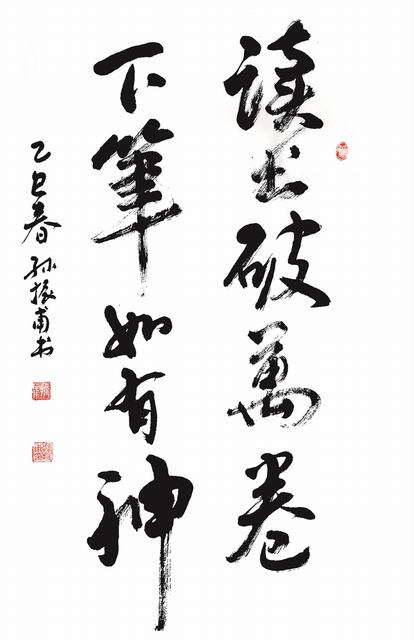 读书破萬卷
下筆如有神
乙巳春 孙振甫书